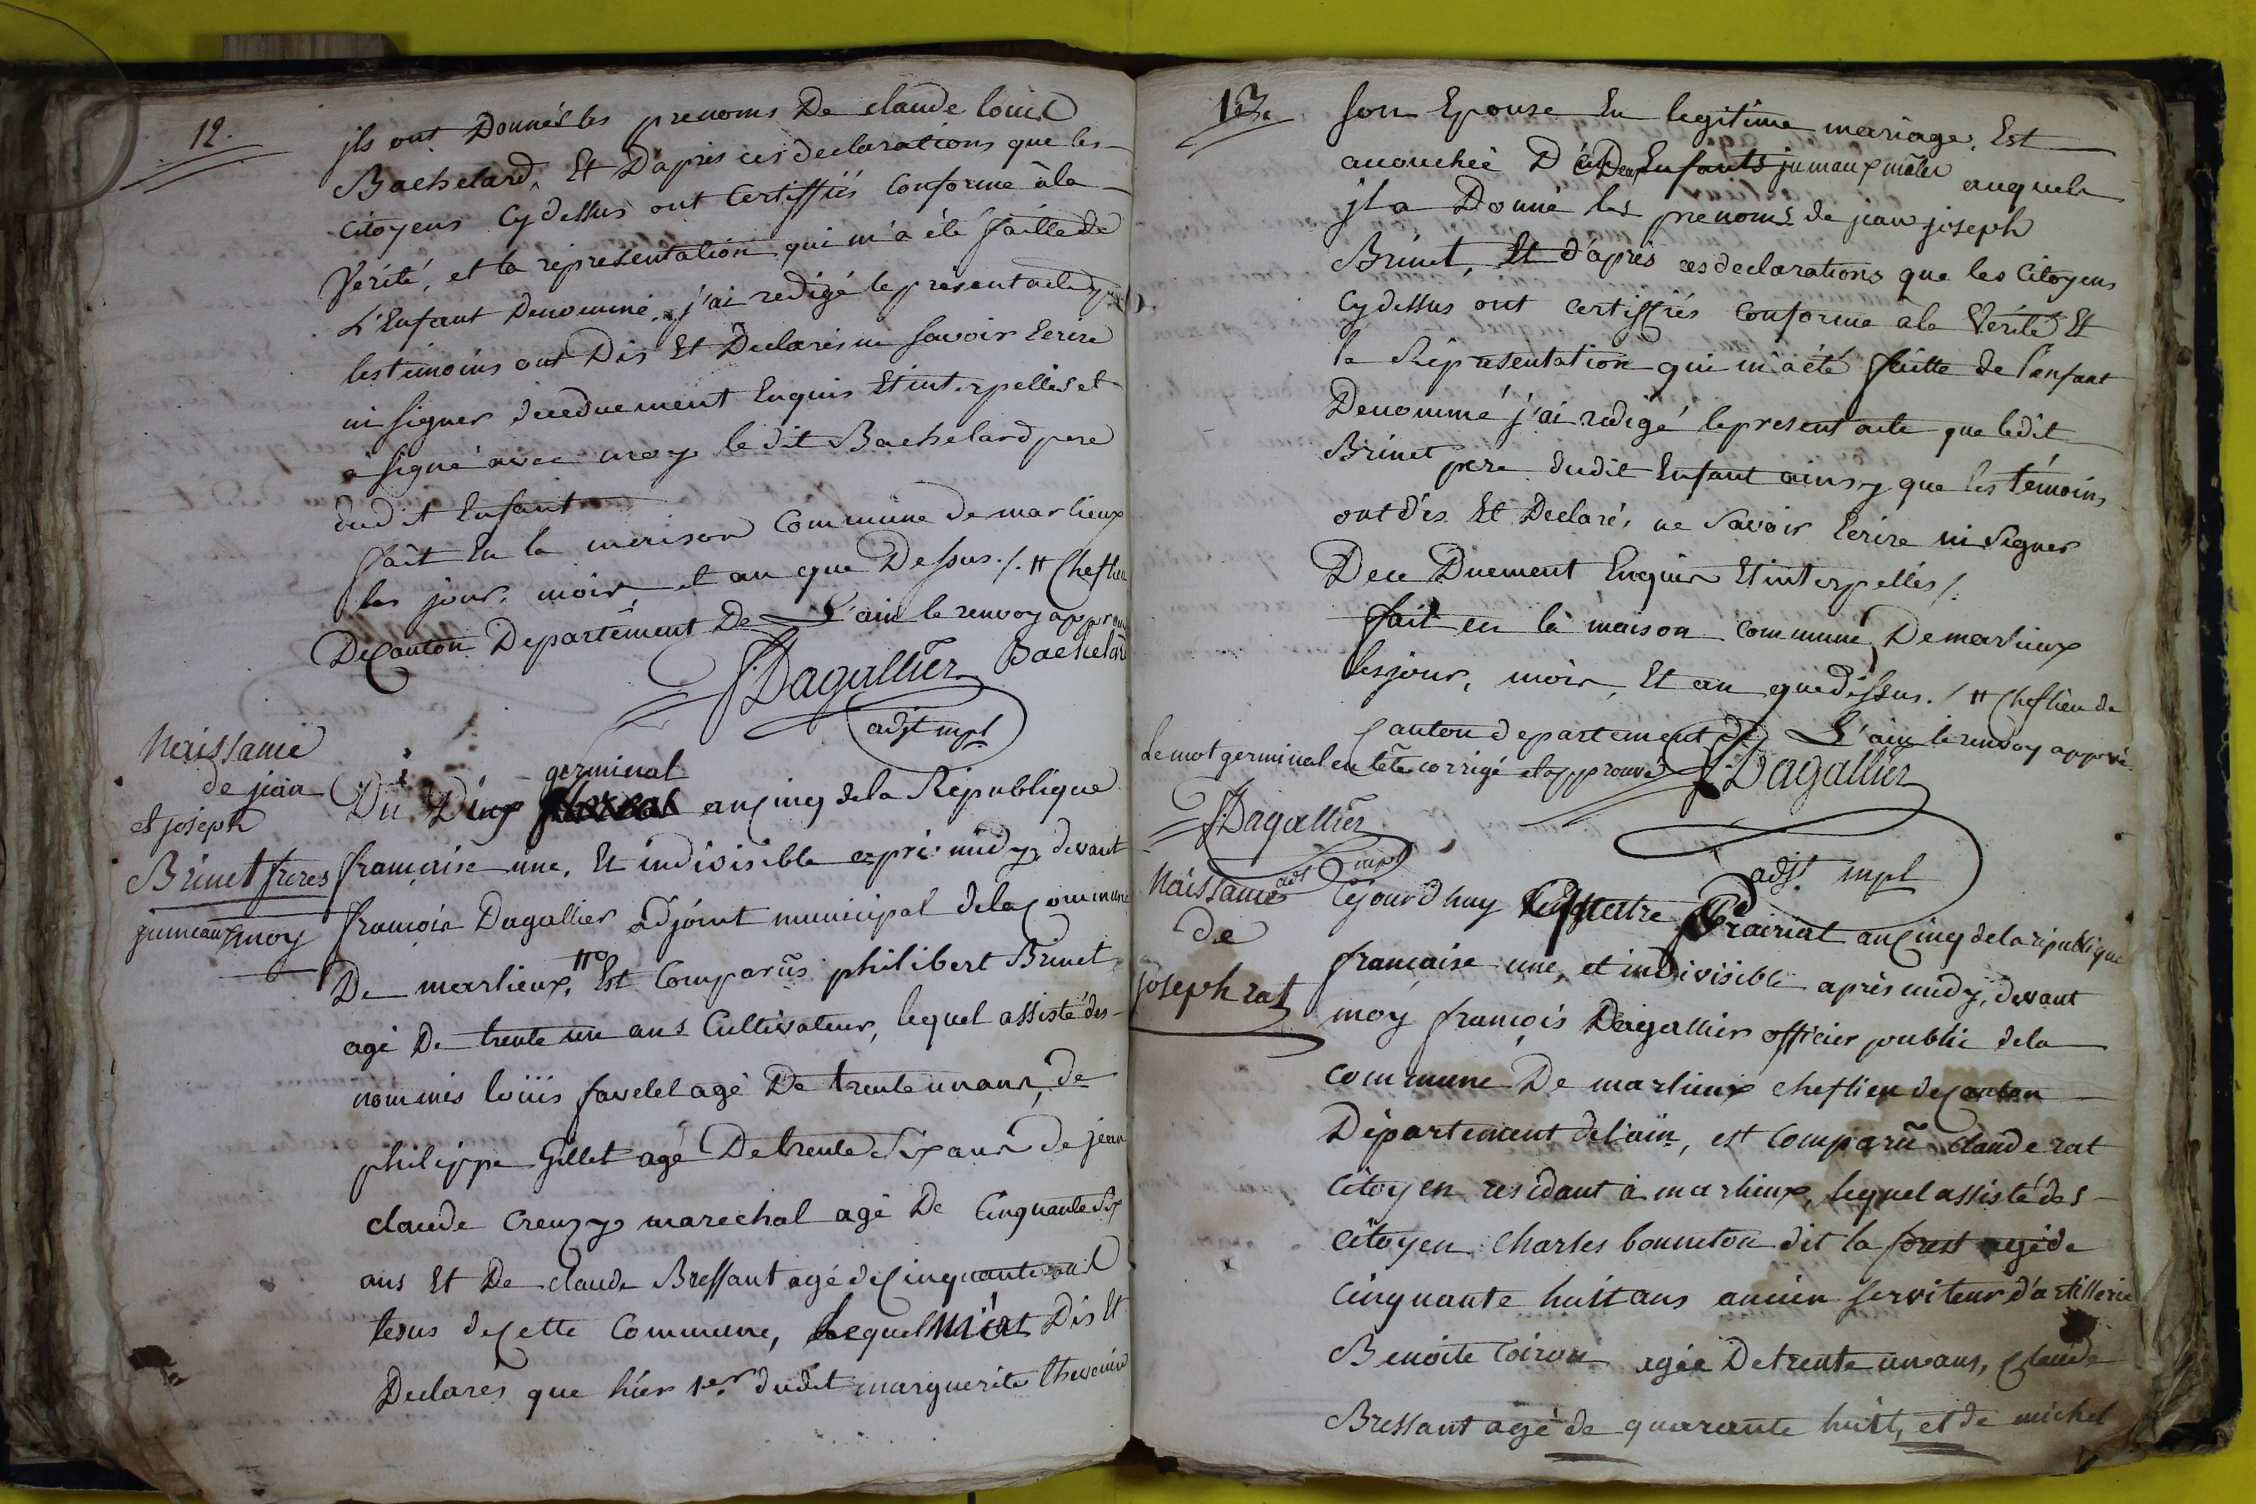 12.
jls ont Donnés les prenoms De claude loüis
Bachelard, Et Dapres ces declarations que les
Citoyens Cydessus ont Certiffiés Conforme àla
Vérité, et la representation qui m'a élé faitte de
L'Enfant Denommé, j'ai redigé le présent acte
les témoins ont Dis Et Declarés ne Savoir Ecrire
ni Signer dece duement Enquis Et interpellés et
a Signé avec moy le dit Bachelard pere
dudit Enfant
fait En la maison Commune de marlieux
les jour, mois et an que Dessus ./. # Cheflieu
De Canton Departement De L'ain le renvoy approuvé
Bachelard
f. Dagallier
adjt mpl
Naissance
de jean
et joseph
Brinet freres
jumeaux
Du Deux germinal an Cinq dela République
française une, Et indivisible après midy, devant
moy françois Dagallier adjoint municipal dela Commune
De marlieux, # Est Comparüs philibert Brinet
agé De trente un ans Cultivateur, lequel assisté des
nommés loüis favelet agé De trente un ans, de
philippe Gillet agé De trente Six ans De jean
claude Creuzy marechal agé De Cinquante Six
ans Et De claude Bressant agé de Cinquante ans
tesus de Cette Commune, Lequel m'ont Dis Et
Declarés que hier 1er dudit marguerite thevenin
13.
Son Epouse En legitime mariage, Est
acouchée D Deux Enfants jumeaux mâles auquels
jl a Donné les prenoms de jean joseph
Brinet, Et d'après ces declarations que les Citoyens
Cydessus ont certiffiés Conforme àla Vérité Et
la Répresentation qui m'a été faitte de l'enfant
Denommé j'ai redigé le present acte que ledit
Brinet pere dudit Enfant ainsy que les témoins
ont dis Et Declaré, ne Savoir Ecrire ni Signer
Dece Duement Enquis Et interpellés /.
fait en la maison commune De marlieux
les jour, mois, Et an que dessus. / # Cheflieu de
Canton departement de L'ain le renvoy approuvé
Le mot germinal en tête corrigé et approuvé
f. Dagallier
f. Dagallier
adjt mpl
adjt mpl
Naissance
de
joseph rat
Cejourd'huy quatre Prairial an Cinq dela république
française une, et indivisible après midy, devant
moy françois Dagallier officier public dela
commune De marlieux cheflieu de Canton
Département del'ain, est Comparü claude rat
Citoyen residant à marlieux, lequel assisté des
citoyen Charles bonneton dit la forest agé de
Cinquante huit ans ancien serviteur d'artillerie
Benoite Coiron agée De trente un ans, Claude
Bressant agé de quarante huit, et de michel